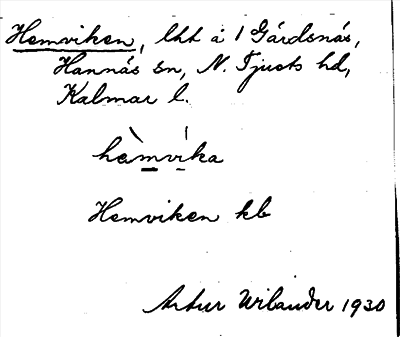 Hemviken, lht å 1 Gårdsnäs,
Hannäs sn, N. Tjusts hd,
Kalmar l.
hèmvi̇́ka
Hemviken kb
Artur Wilander 1930